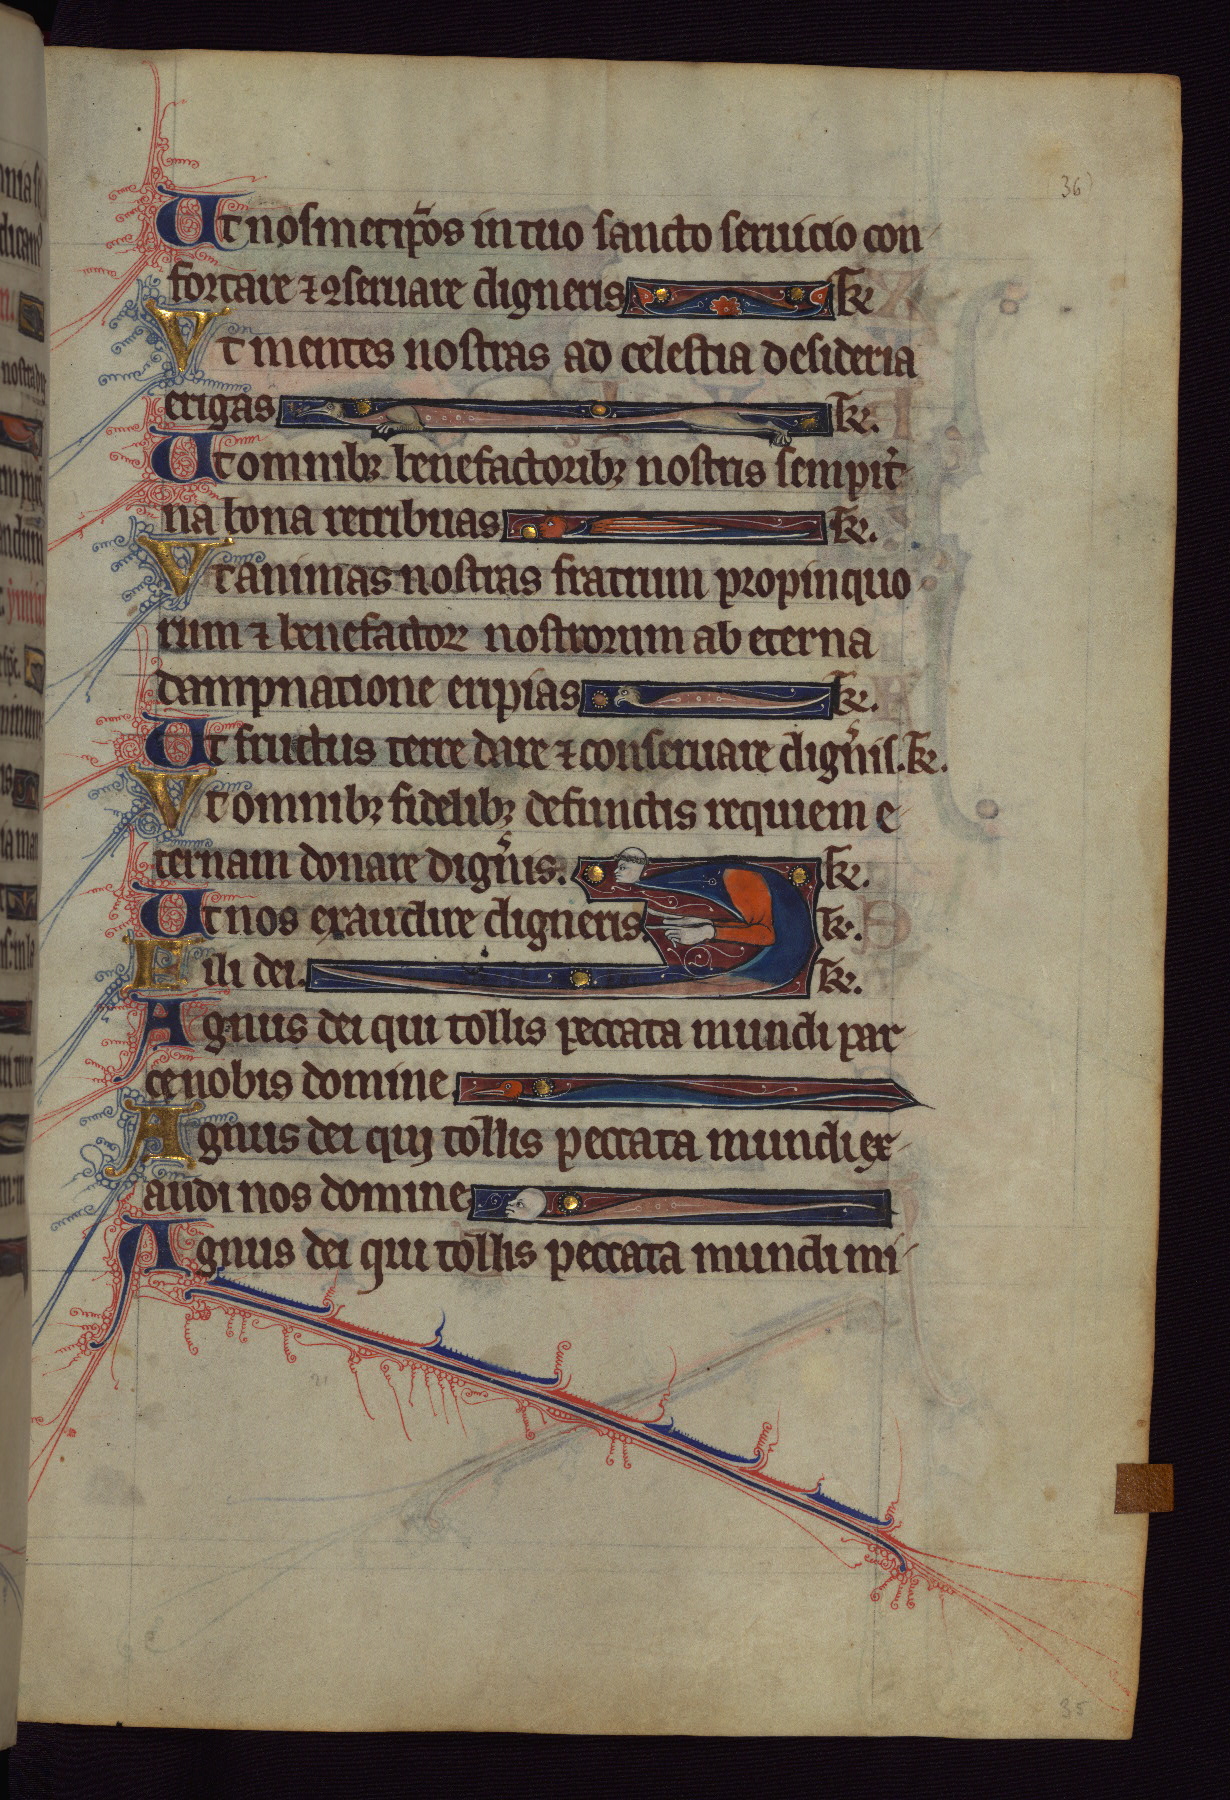 36
Ut nosmetip̄os in tuo sancto seruicio con
fortare ⁊ ꝯseruare digneris Te.
Vt mentes nostras ad celestia desideria
erigas Te.
Ut omnibꝫ benefactoribꝫ nostris sempit̾
na bona retribuas Te.
Vt animas nostras fratrum propinquo
rum ⁊ benefactoꝝ nostrorum ab eterna
dampnatione eripias Te.
Ut fructus terre dare ⁊ conseruare dign̾is. Te.
Vt omnibꝫ fidelibꝫ defunctis requiem e
ternam donare dign̾is. Te.
Ut nos exaudire digneris. Te.
Fili dei. Te.
Agnus dei qui tollis peccata mundi par
ce nobis domine
Agnus dei qui tollis peccata mundi ex
audi nos domine
Agnus dei qui tollis peccata mundi mi
35